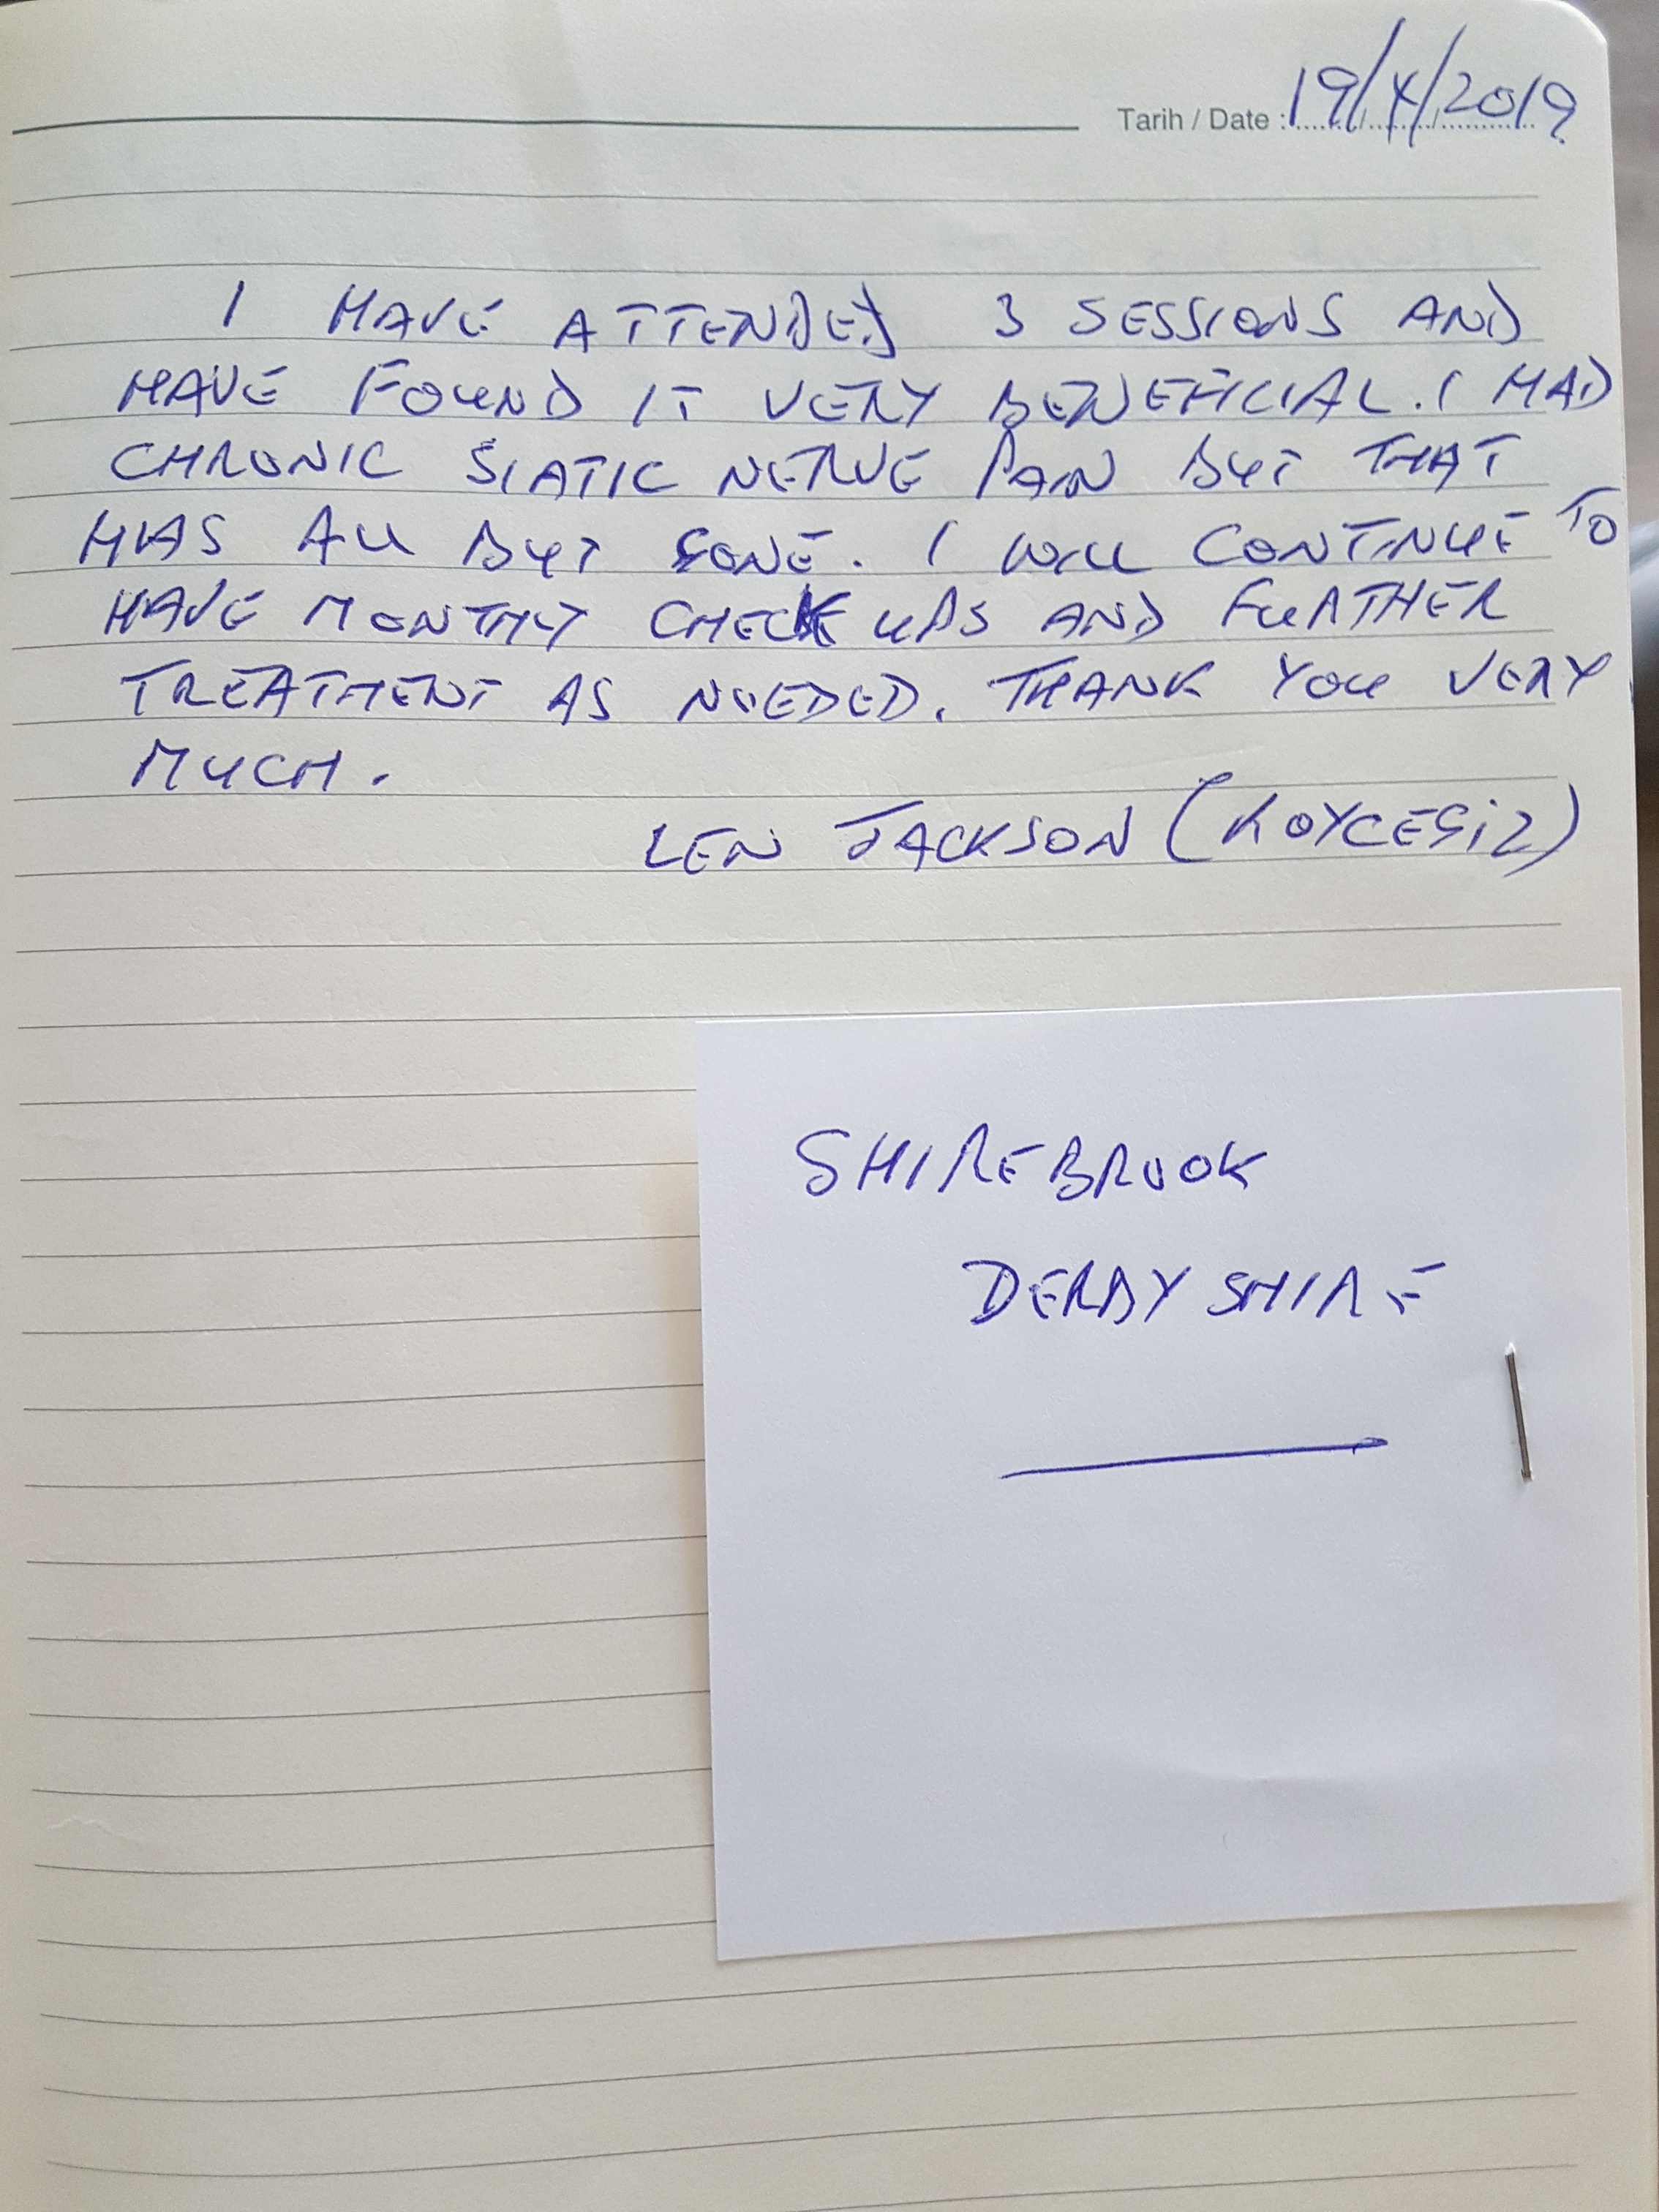 Tarih / Date : 19/4/2019
I HAVE ATTENDED 3 SESSIONS AND
HAVE FOUND IT VERY BENEFICIAL. I HAD
CHRONIC SIATIC NERVE PAIN BUT THAT
HAS ALL BUT GONE. I WILL CONTINUE TO
HAVE MONTHLY CHECK UPS AND FURTHER
TREATMENT AS NEEDED. THANK YOU VERY
MUCH.
LEN JACKSON (KOYCEGİZ)
SHIREBROOK
DERBYSHIRE